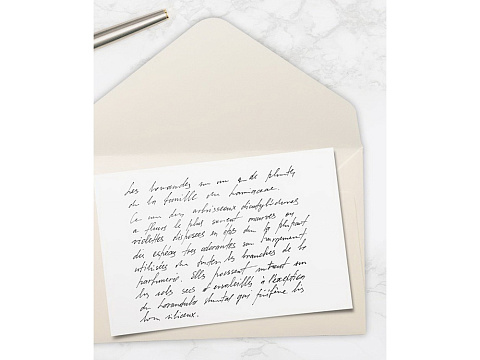 Les lavandes
de la famille des Lamiaceae.
Ce sont des arbrisseaux dicotylédones
à fleurs le plus souvent mauves ou
violettes disposées en épis dont la plupart
des espèces très odorantes sont largement
utilisées dans toutes les branches de la
parfumerie. Elles poussent surtout sur
les sols secs et ensoleillés à l'exception
de Lavandula que préfère les
siliceux.